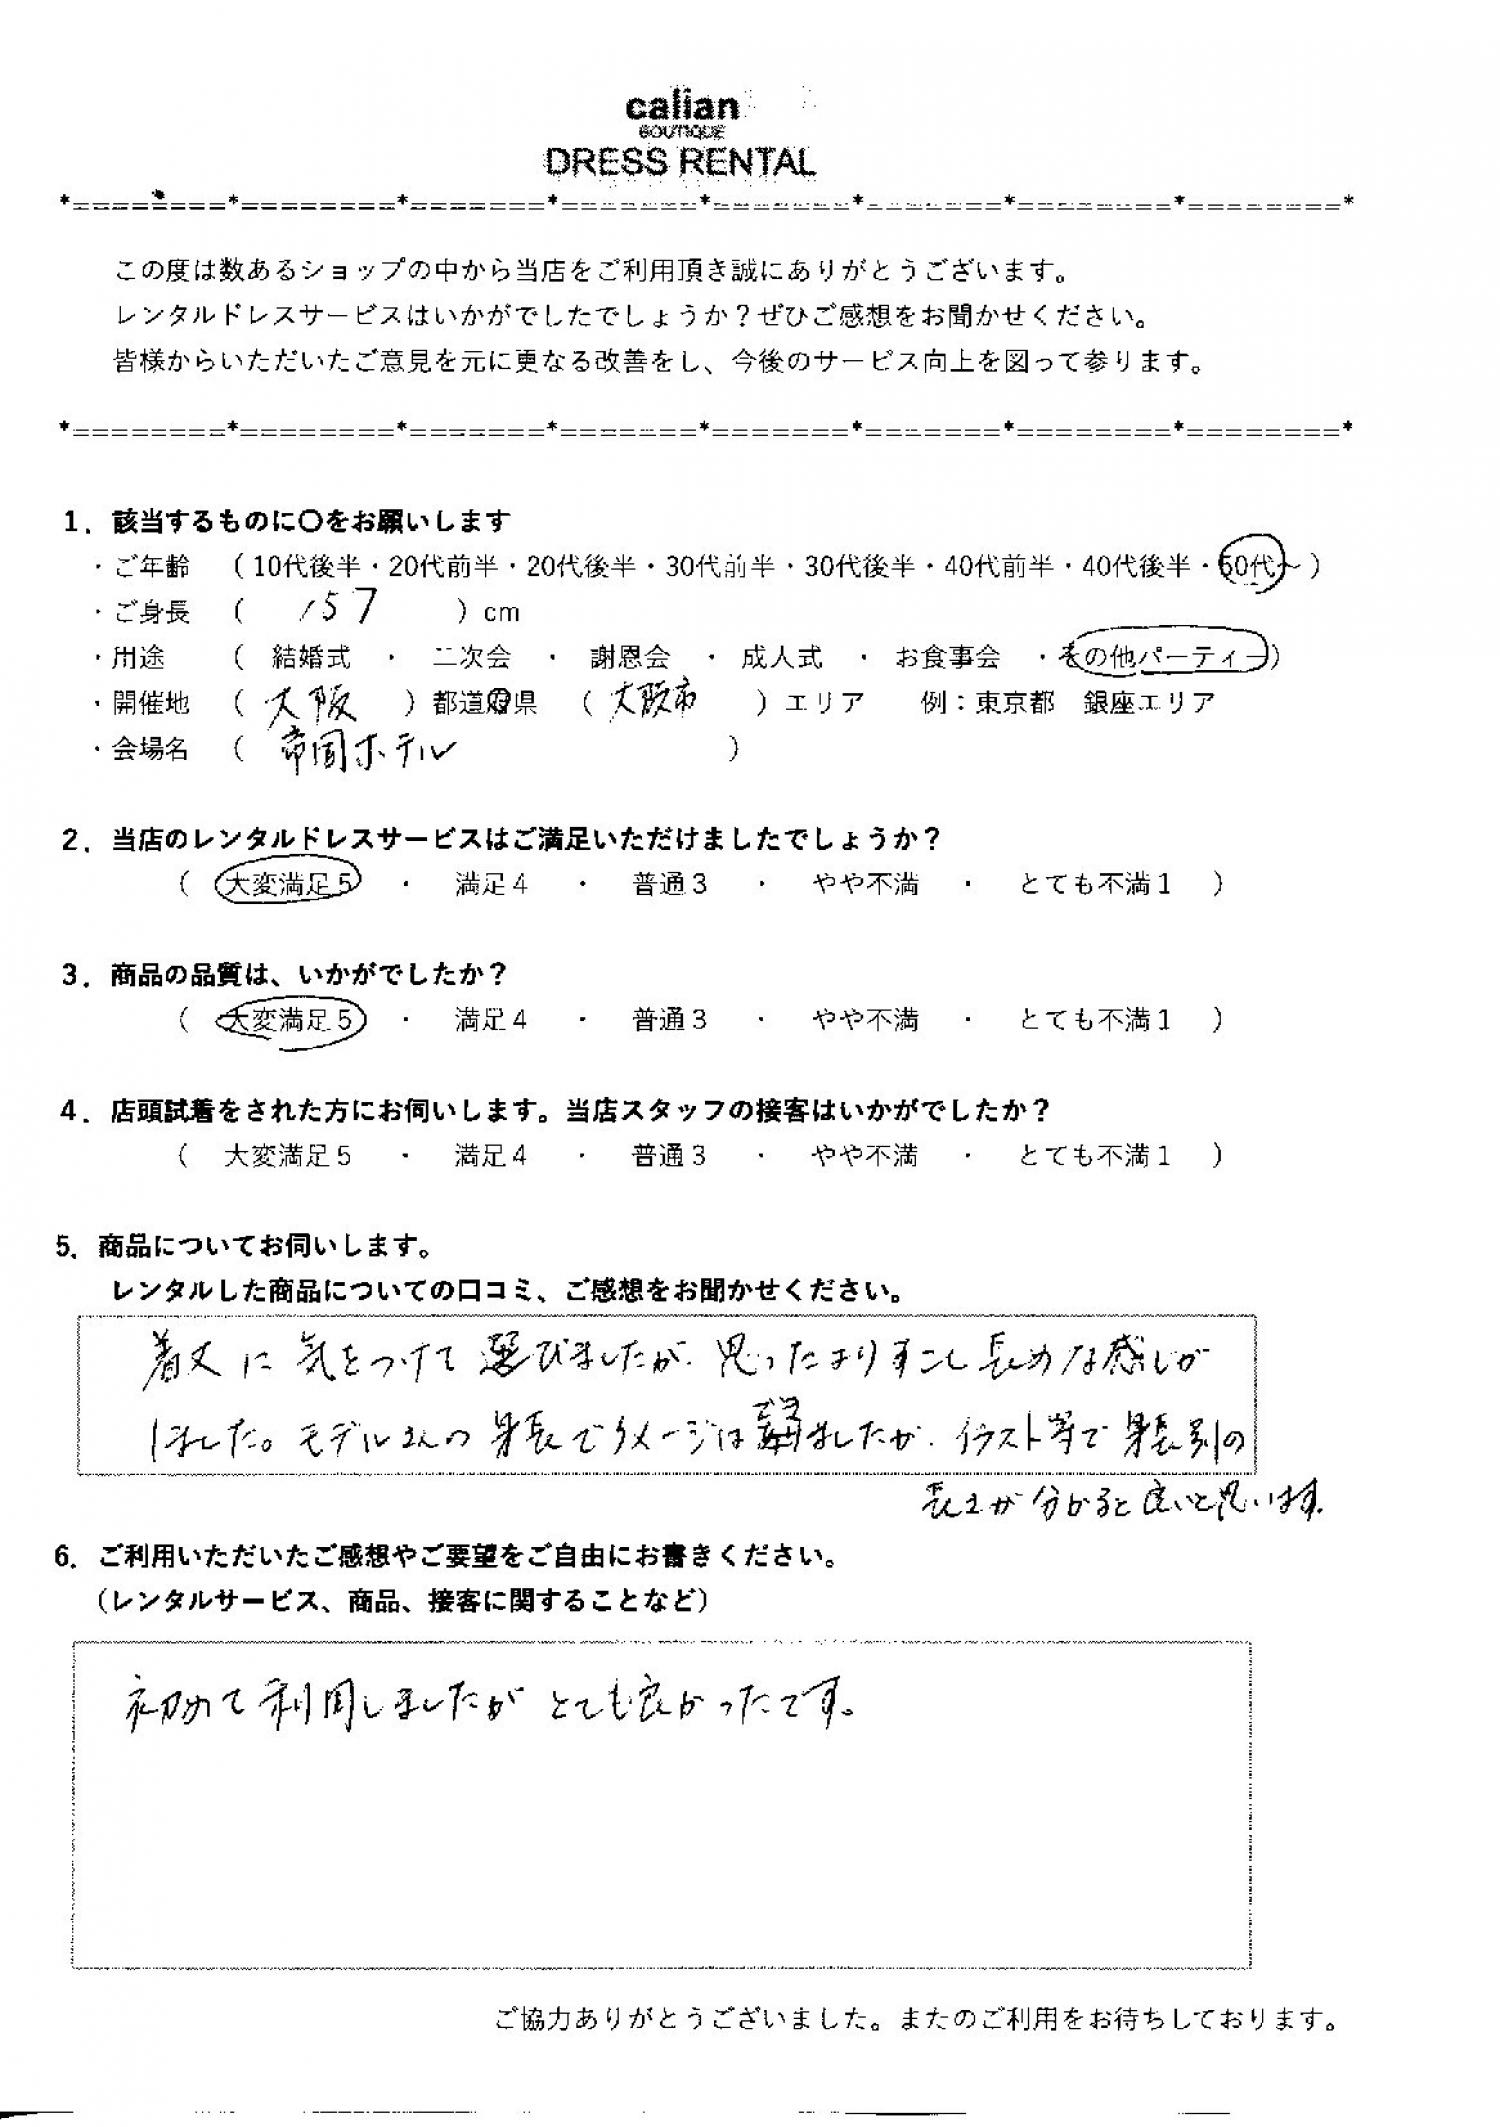 calian
BOUTIQUE
DRESS RENTAL
*========*========*=======*=======*=======*=======*========*========*
この度は数あるショップの中から当店をご利用頂き誠にありがとうございます。
レンタルドレスサービスはいかがでしたでしょうか？ぜひご感想をお聞かせください。
皆様からいただいたご意見を元に更なる改善をし、今後のサービス向上を図って参ります。
*========*========*=======*=======*=======*=======*========*========*
1．該当するものに〇をお願いします
・ご年齢 （10代後半・20代前半・20代後半・30代前半・30代後半・40代前半・40代後半・50代～）
・ご身長 （ 157 ）cm
・用途 （ 結婚式 ・ 二次会 ・ 謝恩会 ・ 成人式 ・ お食事会 ・その他パーティー）
・開催地 （ 大阪 ）都道府県 （ 大阪市 ）エリア 例：東京都 銀座エリア
・会場名 （ 帝国ホテル ）
2．当店のレンタルドレスサービスはご満足いただけましたでしょうか？
（ 大変満足5 ・ 満足4 ・ 普通3 ・ やや不満 ・ とても不満1 ）
3．商品の品質は、いかがでしたか？
（ 大変満足5 ・ 満足4 ・ 普通3 ・ やや不満 ・ とても不満1 ）
4．店頭試着をされた方にお伺いします。当店スタッフの接客はいかがでしたか？
（ 大変満足5 ・ 満足4 ・ 普通3 ・ やや不満 ・ とても不満1 ）
5．商品についてお伺いします。
レンタルした商品についての口コミ、ご感想をお聞かせください。
着丈に気をつけて選びましたが、思ったよりすこし長めな感じが
しました。モデルさんの身長でイメージはましたが、イラスト等で身長別の
長さが分かると良いと思います。
6．ご利用いただいたご感想やご要望をご自由にお書きください。
（レンタルサービス、商品、接客に関することなど）
初めて利用しましたがとても良かったです。
ご協力ありがとうございました。またのご利用をお待ちしております。